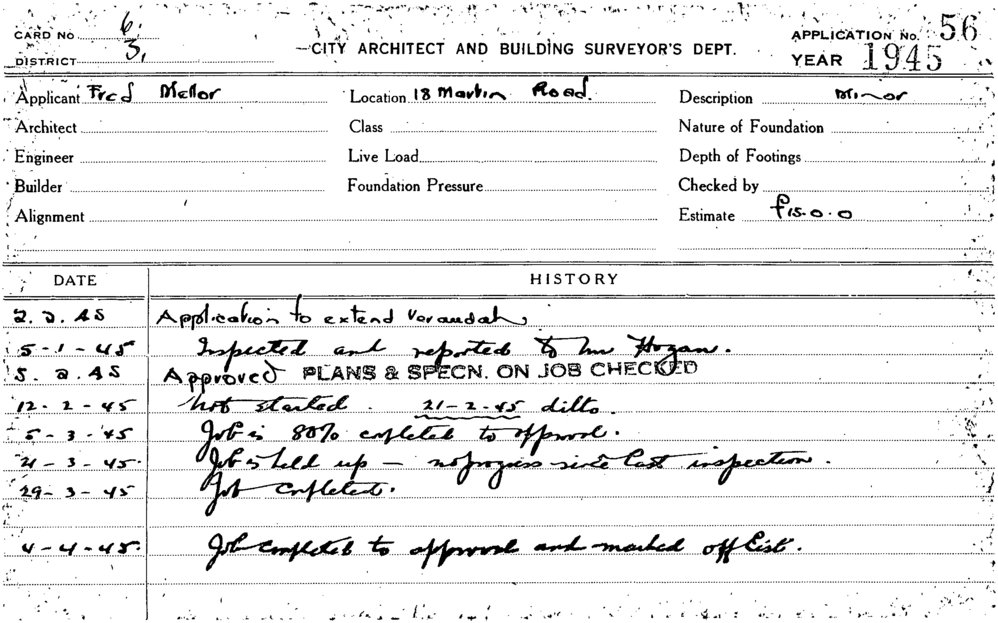 CARD No 6.
DISTRICT 3.
CITY ARCHITECT AND BUILDING SURVEYOR'S DEPT.
APPLICATION No. 56
YEAR 1945
Applicant Fred Mellor
Location 18 Martin Road.
Description Minor
Architect
Class
Nature of Foundation
Engineer
Live Load
Depth of Footings
Builder
Foundation Pressure
Checked by
Alignment
Estimate £15.0.0
DATE HISTORY
2.2.45 Application to extend Verandah
5-1-45 Inspected and reported to Mr Hogan.
5.2.45 Approved PLANS & SPECN. ON JOB CHECKED
12-2-45 Not started. 21-2-45 ditto.
5-3-45 Job is 80% completed to approval.
21-3-45. Job is held up - no progress since last inspection.
29-3-45 Job completed.
4-4-45. Job completed to approval and marked off List.